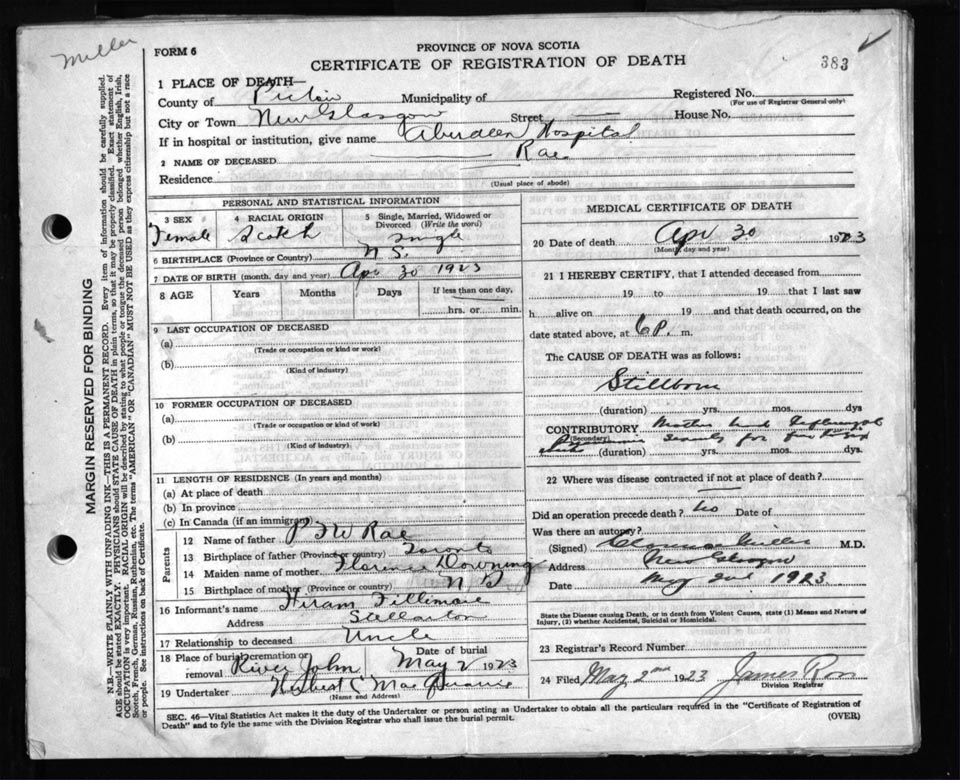 Miller
FORM 6
PROVINCE OF NOVA SCOTIA
CERTIFICATE OF REGISTRATION OF DEATH
383
1 PLACE OF DEATH—
County of Pictou Municipality of
Registered No.
(For use of Registrar General only)
City or Town New Glasgow Street House No.
If in hospital or institution, give name Aberdeen Hospital
2 NAME OF DECEASED Rae
Residence
(Usual place of abode)
PERSONAL AND STATISTICAL INFORMATION
3 SEX
Female
4 RACIAL ORIGIN
Scotch
5 Single, Married, Widowed or Divorced (Write the word)
Single
6 BIRTHPLACE (Province or Country) N S.
7 DATE OF BIRTH (month, day and year) Apr 30 1923
8 AGE Years Months Days If less than one day,
hrs. or min.
9 LAST OCCUPATION OF DECEASED
(a)
(Trade or occupation or kind or work)
(b)
(Kind of industry)
10 FORMER OCCUPATION OF DECEASED
(a)
(Trade or occupation or kind or work)
(b)
(Kind of industry)
11 LENGTH OF RESIDENCE (In years and months)
(a) At place of death
(b) In province
(c) In Canada (if an immigrant)
Parents
12 Name of father Rae
13 Birthplace of father (Province or country) Toronto
14 Maiden name of mother Florence Downing
15 Birthplace of mother (Province or country) N S
16 Informant's name Hiram Fillimore
Address Stellarton
17 Relationship to deceased Uncle
18 Place of burial, cremation or removal River John
Date of burial May 2 1923
19 Undertaker Herbert C
(Name and Address)
MEDICAL CERTIFICATE OF DEATH
20 Date of death Apr 30 1923
(Month, day and year)
21 I HEREBY CERTIFY, that I attended deceased from
19 to 19 that I last saw
h alive on 19 and that death occurred, on
date stated above, at 6 P. m.
The CAUSE OF DEATH was as follows:
Stillborn
(duration) yrs. mos. dys
CONTRIBUTORY Mother had
(Secondary) for
(duration) yrs. mos. dys.
22 Where was disease contracted if not at place of death?
Did an operation precede death? No Date of
Was there an autopsy?
(Signed) Miller M.D.
Address New Glasgow
Date May 2nd 1923
State the Disease causing Death, or in death from Violent Causes, state (1) Means and Nature of
Injury, (2) whether Accidental, Suicidal or Homicidal.
23 Registrar's Record Number
24 Filed May 2nd 1923 James Ross
Division Registrar
SEC. 46—Vital Statistics Act makes it the duty of the Undertaker or person acting as Undertaker to obtain all the particulars required in the "Certificate of Registration of
Death" and to fyle the same with the Division Registrar who shall issue the burial permit.
(OVER)
MARGIN RESERVED FOR BINDING
N.B.—WRITE PLAINLY WITH UNFADING INK—THIS IS A PERMANENT RECORD. Every item of information should be carefully supplied.
AGE should be stated EXACTLY. PHYSICIANS should STATE CAUSE OF DEATH in plain terms, so that it may be properly classified. Exact statement of
OCCUPATION is very important. RACIAL ORIGIN will be described by stating to what people or tongue the deceased person belonged whether English, Irish,
Scotch, French, German, Russian, Ruthenian, etc. The terms "AMERICAN" OR "CANADIAN" MUST NOT BE USED as they express citizenship but not a race
or people. See instructions on back of Certificate.